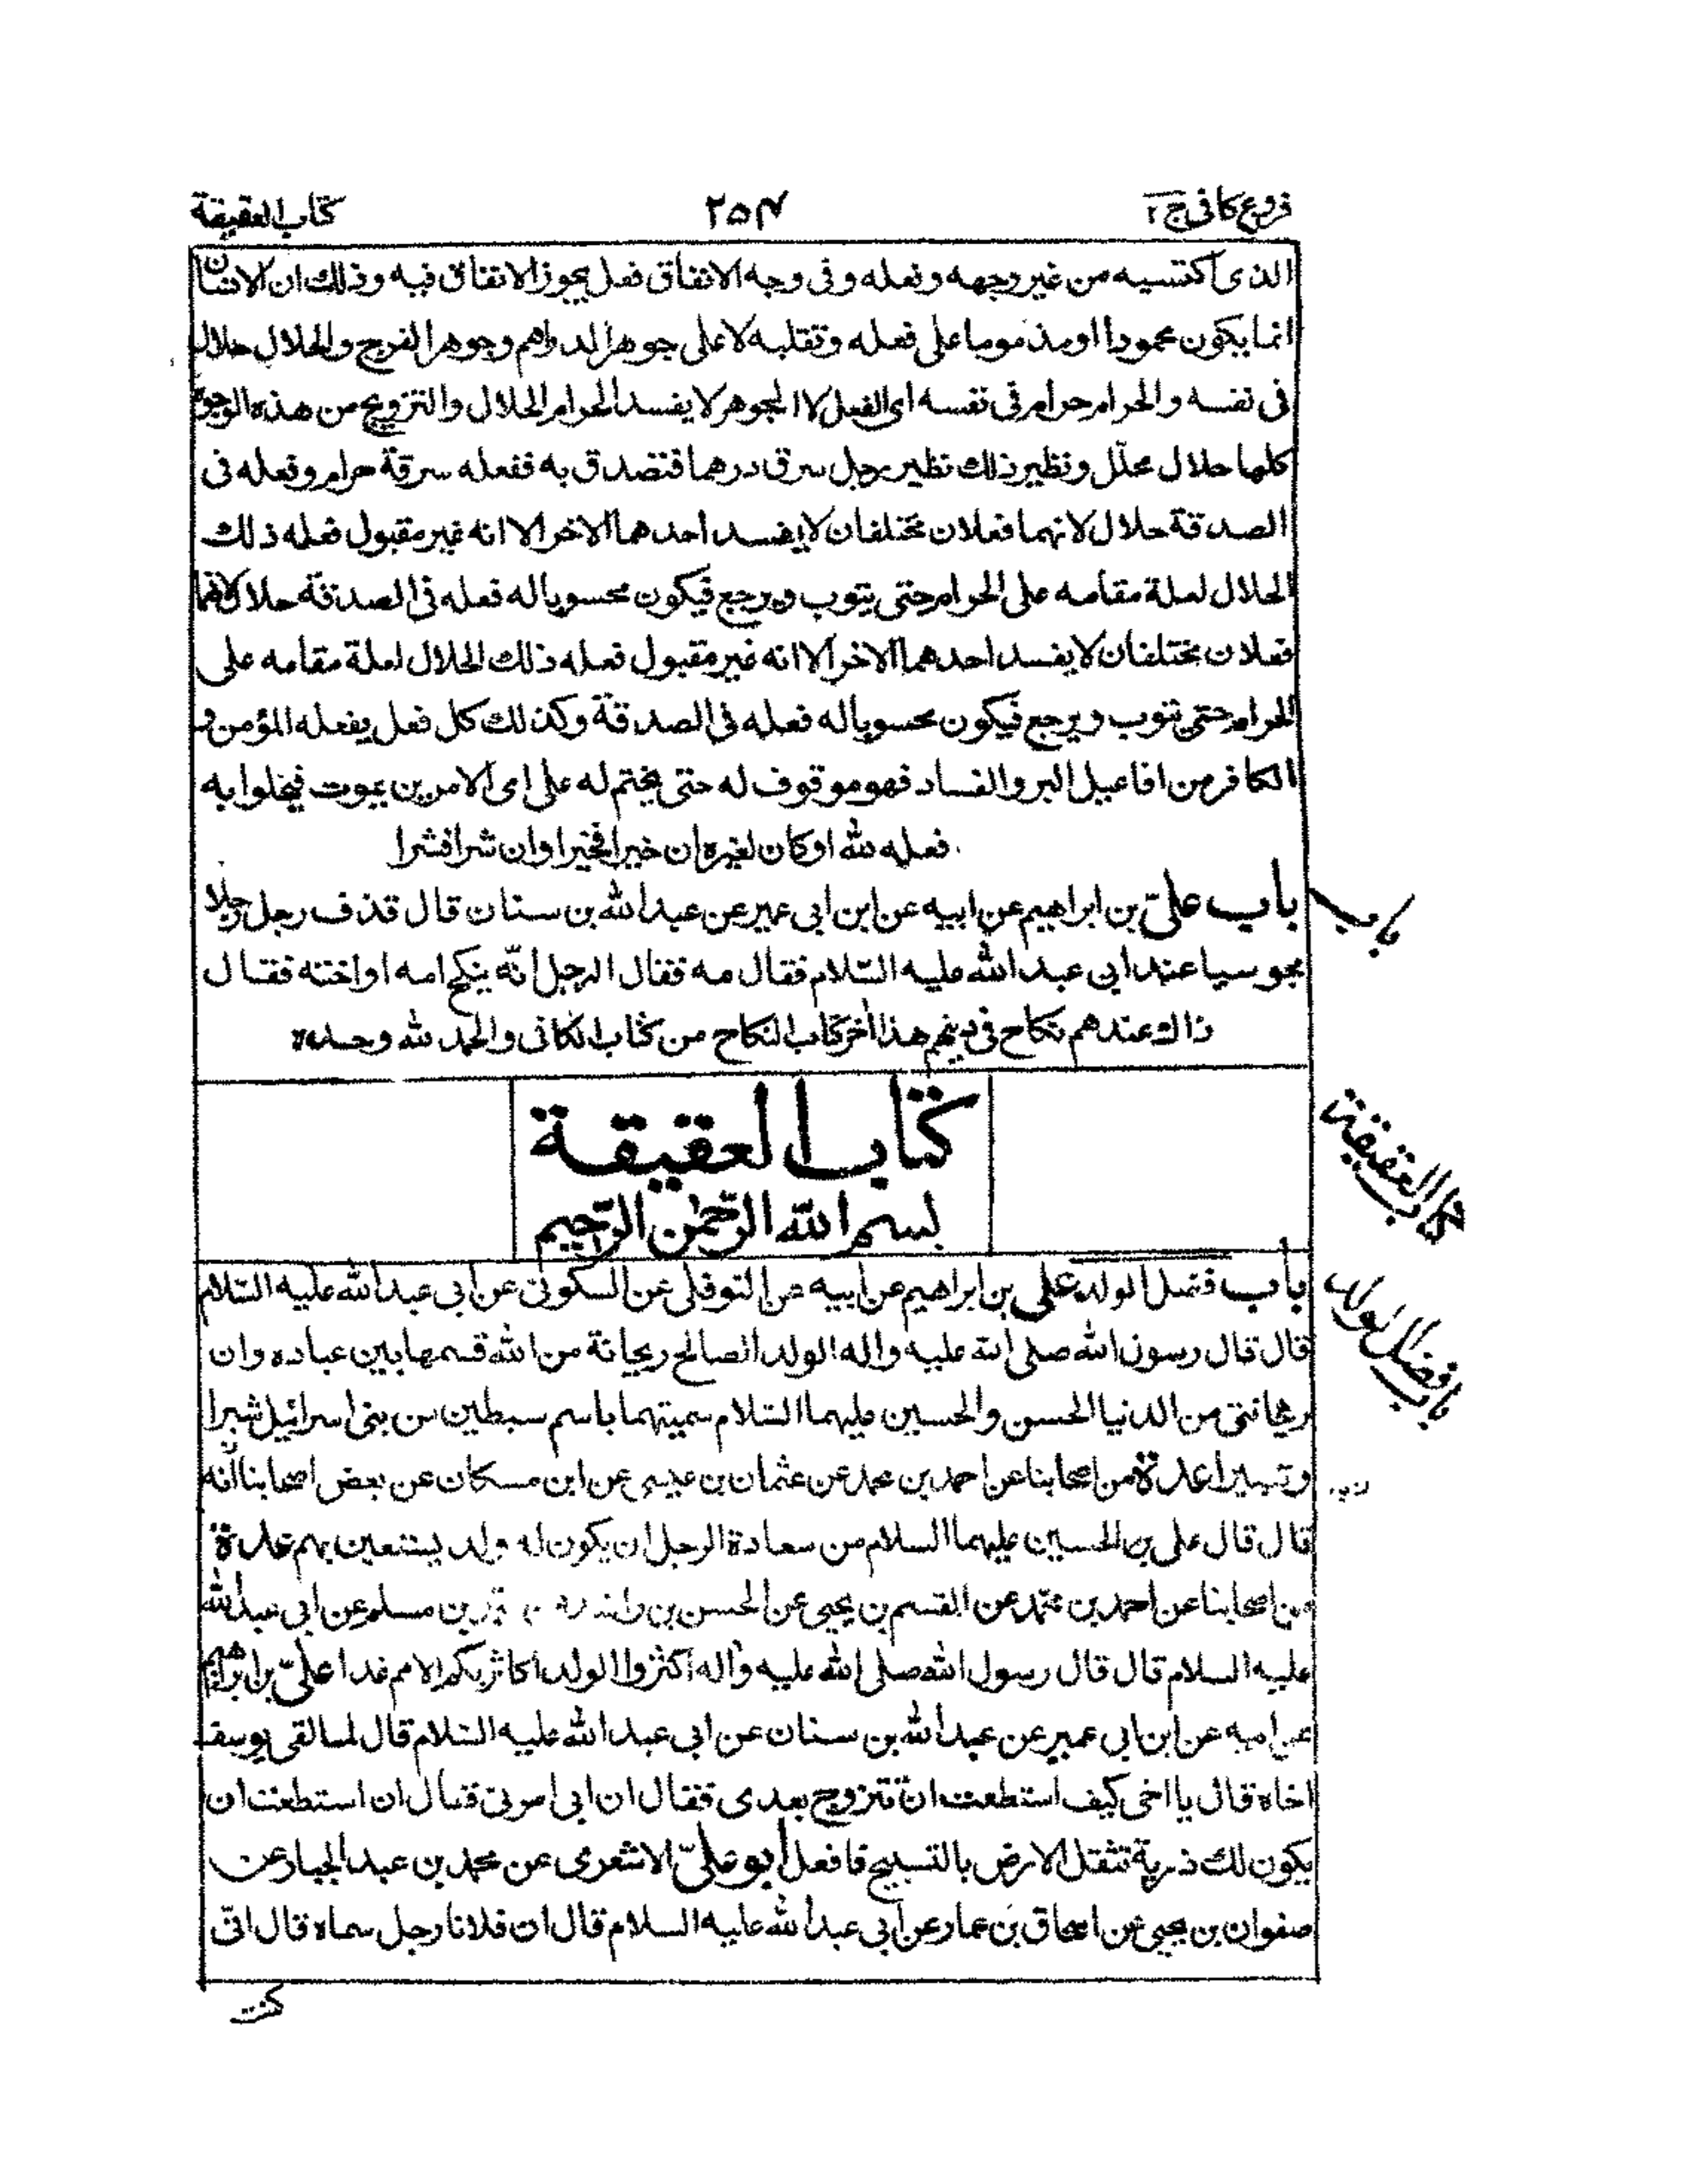 فروع كافى ج ٢
٢٥٤
كتاب العقيقة
الذى اكتسبه من غير وجهه وفعله وفى وجه الانفاق فعل يجوز الانفاق فيه وذلك ان الانسان
انما يكون محمودا او مذموما على فعله وتقلبه لا على جوهر الدراهم وجوهر الفرج والحلال حلال
فى نفسه والحرام حرام فى نفسه اى الفعل لا الجوهر لا يفسد الحرام الحلال والتزويج من هذه الوجوه
كلها حلال محلّل ونظير ذلك نظير رجل سرق درهما فتصدق به ففعله سرقة حرام وفعله فى
الصدقة حلال لانهما فعلان مختلفان لا يفسد احدهما الاخر الا انه غير مقبول فعله ذلك
الحلال لعلة مقامه على الحرام حتى يتوب ويرجع فيكون محسوبا له فعله فى الصدقة حلالا لانهما
فعلان مختلفان لا يفسد احدهما الاخر الا انه غير مقبول فعله ذلك الحلال لعلة مقامه على
الحرام حتى يتوب ويرجع فيكون محسوبا له فعله فى الصدقة وكذلك كل فعل يفعله المؤمن و
الكافر من افاعيل البر والفساد فهو موقوف له حتى يختم له على اى الامرين يموت فيخلوا به
فعله لله او كان لغيره ان خيرا فخيرا وان شرا فشرا
باب علىّ بن ابراهيم عن ابيه عن ابن ابى عمير عن عبد الله بن سنان قال قذف رجل رجلا
باب
مجوسيا عند ابى عبد الله عليه السّلام فقال مه فقال الرجل انّه ينكح امه او اخته فقال
ذاك عندهم نكاح فى دينهم هذا اخر كتاب النكاح من كتاب الكافى والحمد لله وحده
كتاب العقيقة
كتاب العقيقة
بسم الله الرّحمن الرّحيم
باب فضل الولد على بن ابراهيم عن ابيه عن النوفلى عن السكونى عن ابى عبد الله عليه السّلام
باب فضل الولد
قال قال رسول الله صلى الله عليه واله الولد الصالح ريحانة من الله قسمها بين عباده وان
ريحانتى من الدنيا الحسن والحسين عليهما السّلام سميتهما باسم سبطين من بنى اسرائيل شبرا
وشبيرا عدة من اصحابنا عن احمد بن محمد عن عثمان بن عيسى عن ابن مسكان عن بعض اصحابنا انه
قال قال على بن الحسين عليهما السلام من سعادة الرجل ان يكون له ولد يستعين بهم عدة
من اصحابنا عن احمد بن محمّد عن القسم بن يحيى عن الحسن بن راشد عن محمد بن مسلم عن ابى عبد الله
عليه السلام قال قال رسول الله صلى الله عليه واله اكثروا الولد اكاثر بكم الامم غدا علىّ بن ابراهيم
عن ابيه عن ابن ابى عمير عن عبد الله بن سنان عن ابى عبد الله عليه السّلام قال لما لقى يوسف
اخاه قال يا اخى كيف استطعت ان تتزوج بعدى فقال ان ابى امرنى قال ان استطعت ان
يكون لك ذرية تثقل الارض بالتسبيح فافعل ابو علىّ الاشعرى عن محمد بن عبد الجبار عن
صفوان بن يحيى عن اسحاق بن عمار عن ابى عبد الله عليه السلام قال ان فلانا رجل سماه قال انّى
كنت